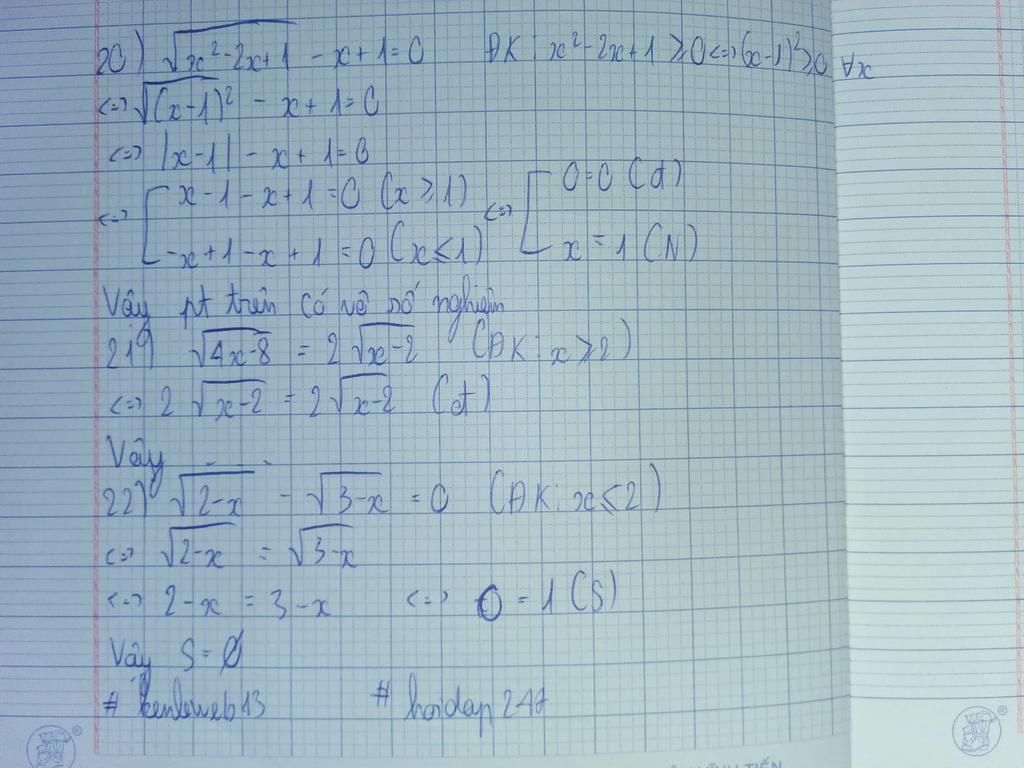 20) √(x²-2x+1) - x+1=0 ĐK: x²-2x+1 ≥0<=>(x-1)²≥0 ∀x
<=> √(x-1)² - x+1=0
<=> |x-1| - x+1=0
<=> [ x-1-x+1=0 (x≥1) <=> [ 0=0 (đ)
-x+1-x+1=0 (x≤1) x=1 (N)
Vậy pt trên có vô số nghiệm
21) √(4x-8) = 2√(x-2) (ĐK: x≥2)
<=> 2√(x-2) = 2√(x-2) (đ)
Vậy
22) √(2-x) - √(3-x) = 0 (ĐK: x≤2)
<=> √(2-x) = √(3-x)
<=> 2-x = 3-x <=> 0=1 (S)
Vậy S=Ø
# kenleweb13 # hoidap247